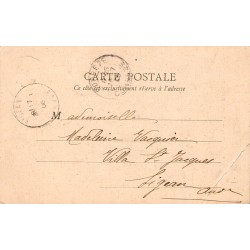 CARTE POSTALE
Ce côté est exclusivement réservé à l'adresse
Mademoiselle
Madeleine Vacquier
Villa St Jacques
Sigean
Aude